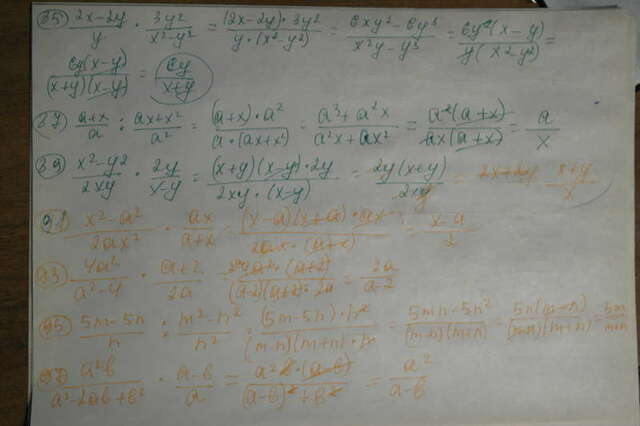 85) (2x-2y)/y · 3y²/(x²-y²) = ((2x-2y)·3y²)/(y·(x²-y²)) = (6xy²-6y³)/(x²y-y³) = (6y²(x-y))/(y(x²-y²)) =
(6y(x-y))/((x+y)(x-y)) = 6y/(x+y)
87) (a+x)/a : (ax+x²)/a² = ((a+x)·a²)/(a·(ax+x²)) = (a³+a²x)/(a²x+ax²) = (a²(a+x))/(ax(a+x)) = a/x
89) (x²-y²)/2xy · 2y/(x-y) = ((x+y)(x-y)·2y)/(2xy·(x-y)) = (2y(x+y))/2xy = (x+y)/x
91) (x²-a²)/2ax² · ax/(a+x) = ((x-a)(x+a)·ax)/(2ax·(a+x)) = (x-a)/2
93) 4a²/(a²-4) · (a+2)/2a (4a²·(a+2))/((a-2)(a+2)·2a) = 2a/(a-2)
95) (5m-5n)/n : (m²-n²)/n² = ((5m-5n)·n²)/((m-n)(m+n)·n) = (5mn-5n²)/((m-n)(m+n)) = (5n(m-n))/((m-n)(m+n)) = 5m/(m+n)
97) a²b/(a²-2ab+b²) · (a-b)/a = (a²b·(a-b))/((a-b)²+b²) = a²/(a-b)